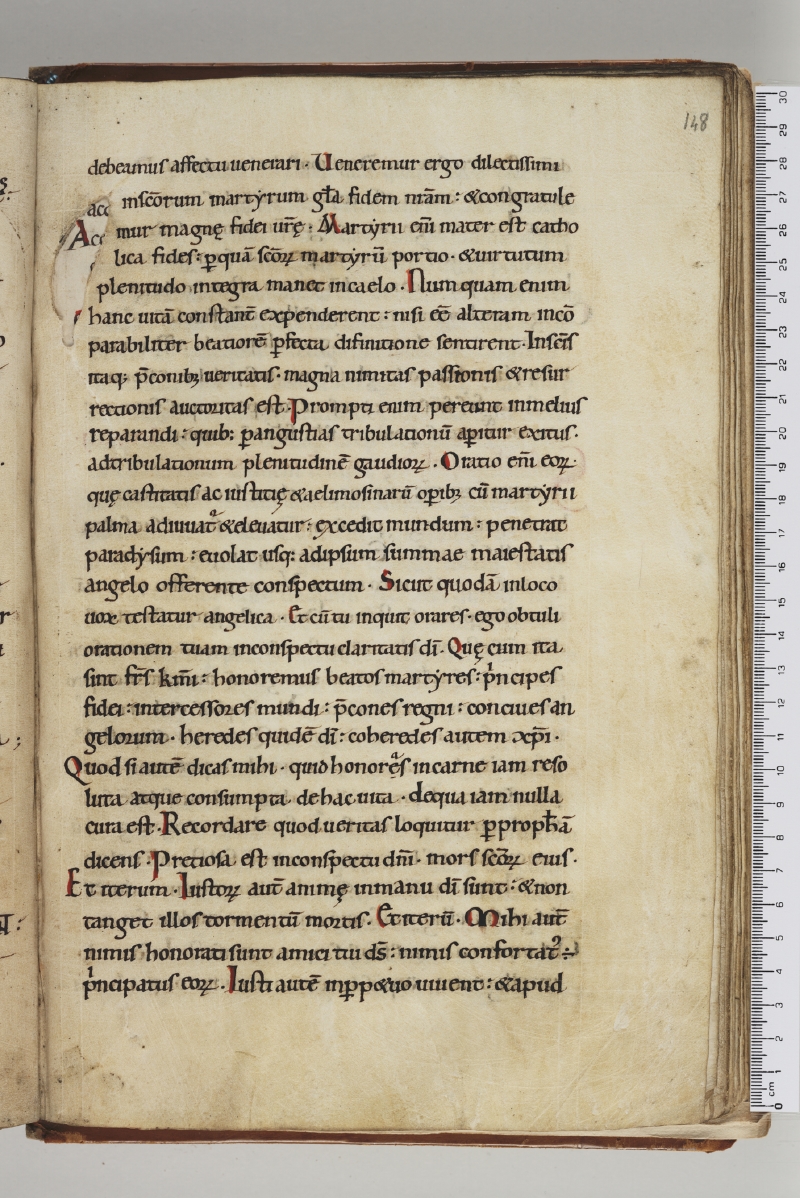 148
debeamus affectu uenerari. Ueneremur ergo dilectissimi
acc insc̄orum martẏrum gl̄a fidem nr̄am: &congratule
Acc mur magnę fidei ur̄ę. Martẏrii eni̅ mater est catho
lica fides: ꝑquā sc̄oꝝ martẏrū portio. &uirtutum
plenitudo integra manet incaelo. Numquam enim
hanc uitā constant̄ expenderent: nisi eē alteram incō
parabiliter beatiorē ꝑfecta difinitione sentirent. Insc̄is
itaq; p̄conib; ueritatis. magna nimitas passionis &resur
rectionis auctoritas est. Prompti enim pereunt inmelius
reparandi: quib: ꝑangustias tribulationū aꝑitur exitus.
adtribulationum plenitudinē gaudioꝝ. Oratio eni̅ eoꝝ.
quę castitatis ac iustitię &aelimosinarū oꝑib; cū martẏrii
palma adiuuatᵃ &eleuatur: excedit mundum: penetrat
paradẏsum: euolat usq: adipsum summae maiestatis
angelo offerente conspectum. Sicut quodā inloco
uox testatur angelica. Et cū tu inquit orares. ego obtuli
orationem tuam inconspectu claritatis dī. Quę cum ita
sint fr̄s km̄i: honoremus beatos martẏres: pͥncipes
fidei: intercessores mundi: p̄cones regni: conciues an
gelorum. heredes quidē dī: coheredes autem xp̄i.
Quod si autē dicas mihi. quid honorᵃęs incarne iam reso
luta atque consumpta. dehac uita. dequa iam nulla
cura est. Recordare quod ueritas loquitur ꝑproph̄ā
dicens. Pretiosa est inconspectu dn̄i. mors sc̄oꝝ eius.
Et iterum. Iustoꝝ aut̄ animę inmanu dī sunt: &non
tanget illos tormentū mortis. Et iterū. Mihi aut̄
nimis honorati sunt amici tui ds̄: nimis confortat᾽ ÷
pͥncipatus eoꝝ. Iusti autē inꝑp&uo uiuent: &apud